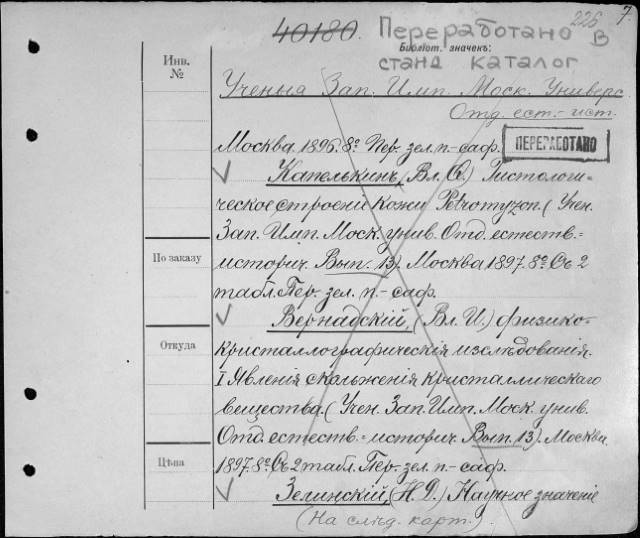 226 7.
40180. Переработано в
Библіот. значекъ:
станд каталог
Инв. №
Ученыя Зап. Имп. Моск. Универс.
Отд. ест.-ист.
Москва 1896. 8º Пер. зел. п.-саф.
ПЕРЕРАБОТАНО
Капелькинъ, (Вл. Ѳ.) Гистологи-
ческое строеніе кожи Petromyzon. (Учен.
Зап. Имп. Моск. унив. Отд. естеств.=
историч. Вып. 13). Москва 1897. 8º Съ 2
По заказу
табл. Пер. зел. п.-саф.
Вернадскій, (Вл. И.) физико-
Откуда
кристаллографическія изслѣдованія.
I Явленія скольженія кристаллическаго
вещества. (Учен. Зап. Имп. Моск. унив.
Отд. естеств.=историч. Вып. 13). Москва
Цѣна
1897. 8º Съ 2 табл. Пер. зел. п.-саф.
Зелинскій, (Н. Д.) Научное значеніе
(На слѣд. карт.).